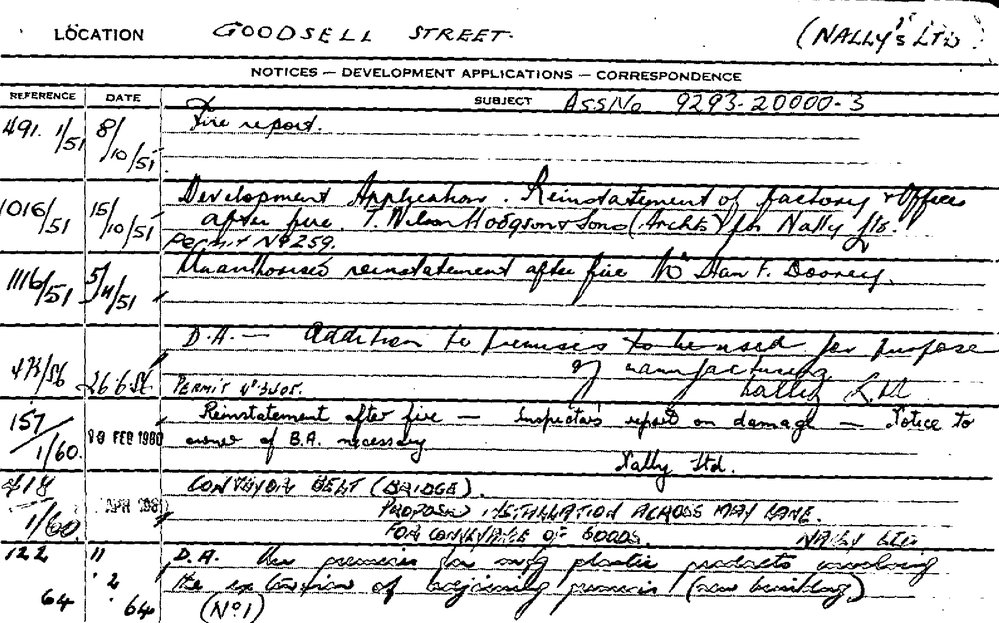 LOCATION GOODSELL STREET. (NALLY'S LTD)
NOTICES — DEVELOPMENT APPLICATIONS — CORRESPONDENCE
REFERENCE DATE SUBJECT ASSNO 9293-20000-3
491. 1/51 8/10/51 Fire report.
1016/51 15/10/51 Development Application. Reinstatement of factory & Offices
after fire. T. Wilson Hodgson & Sons (Archts) for Nally Ltd.
Permit Nº 259.
1116/51 5/11/51 Unauthorised reinstatement after fire Stan F.
D.A. — Addition to premises to be used for purpose
of manufacturing
/56 26.6.56 PERMIT Nº Nally Ltd
157/1/60. FEB 1960 Reinstatement after fire — Inspector's report on damage — Notice to
owner of B.A. necessary
Nally Ltd.
418 CONVEYOR BELT (BRIDGE).
1/60. APR PROPOSED INSTALLATION ACROSS MAY LANE.
FOR CONVEYANCE OF GOODS. NALLY LTD
122 " D.A. Use premises for mfg plastic products involving
2 the extension of adjoining premises (new building)
64 64 (Nº1)